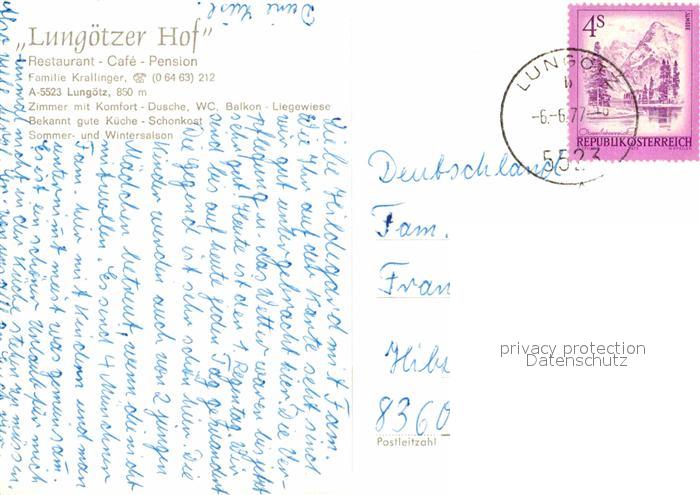 „Lungötzer Hof"
Restaurant - Café - Pension
Familie Krallinger, ☎ (0 64 63) 212
A-5523 Lungötz, 850 m
Zimmer mit Komfort - Dusche, WC, Balkon - Liegewiese
Bekannt gute Küche - Schonkost
Sommer- und Wintersaison
Liebe Hildegard mit Fam.
Wie ihr auf der Karte seht sind
wir gut untergebracht hier. Die Ver-
pflegung u. das Wetter waren bis jetzt
sehr gut. Heute ist der 1 Regentag. Wir
sind bis auf heute jeden Tag gewandert
Die Gegend ist sehr schön hier. Die
Kinder werden auch von 2 jungen
Mädchen betreut, wenn die nicht
mitwollen. Es sind 4 Münchner
Fam. hier mit Kindern und man
unternimmt meist was gemeinsam.
Es ist ein schöner Urlaub für mich
einmal nicht in der Küche stehen zu müssen.
4S
LUNGÖTZ
-6.-6.77
5523
REPUBLIK ÖSTERREICH
Deutschland
Fam.
Fran
Hibl
8360
Postleitzahl
privacy protection
Datenschutz